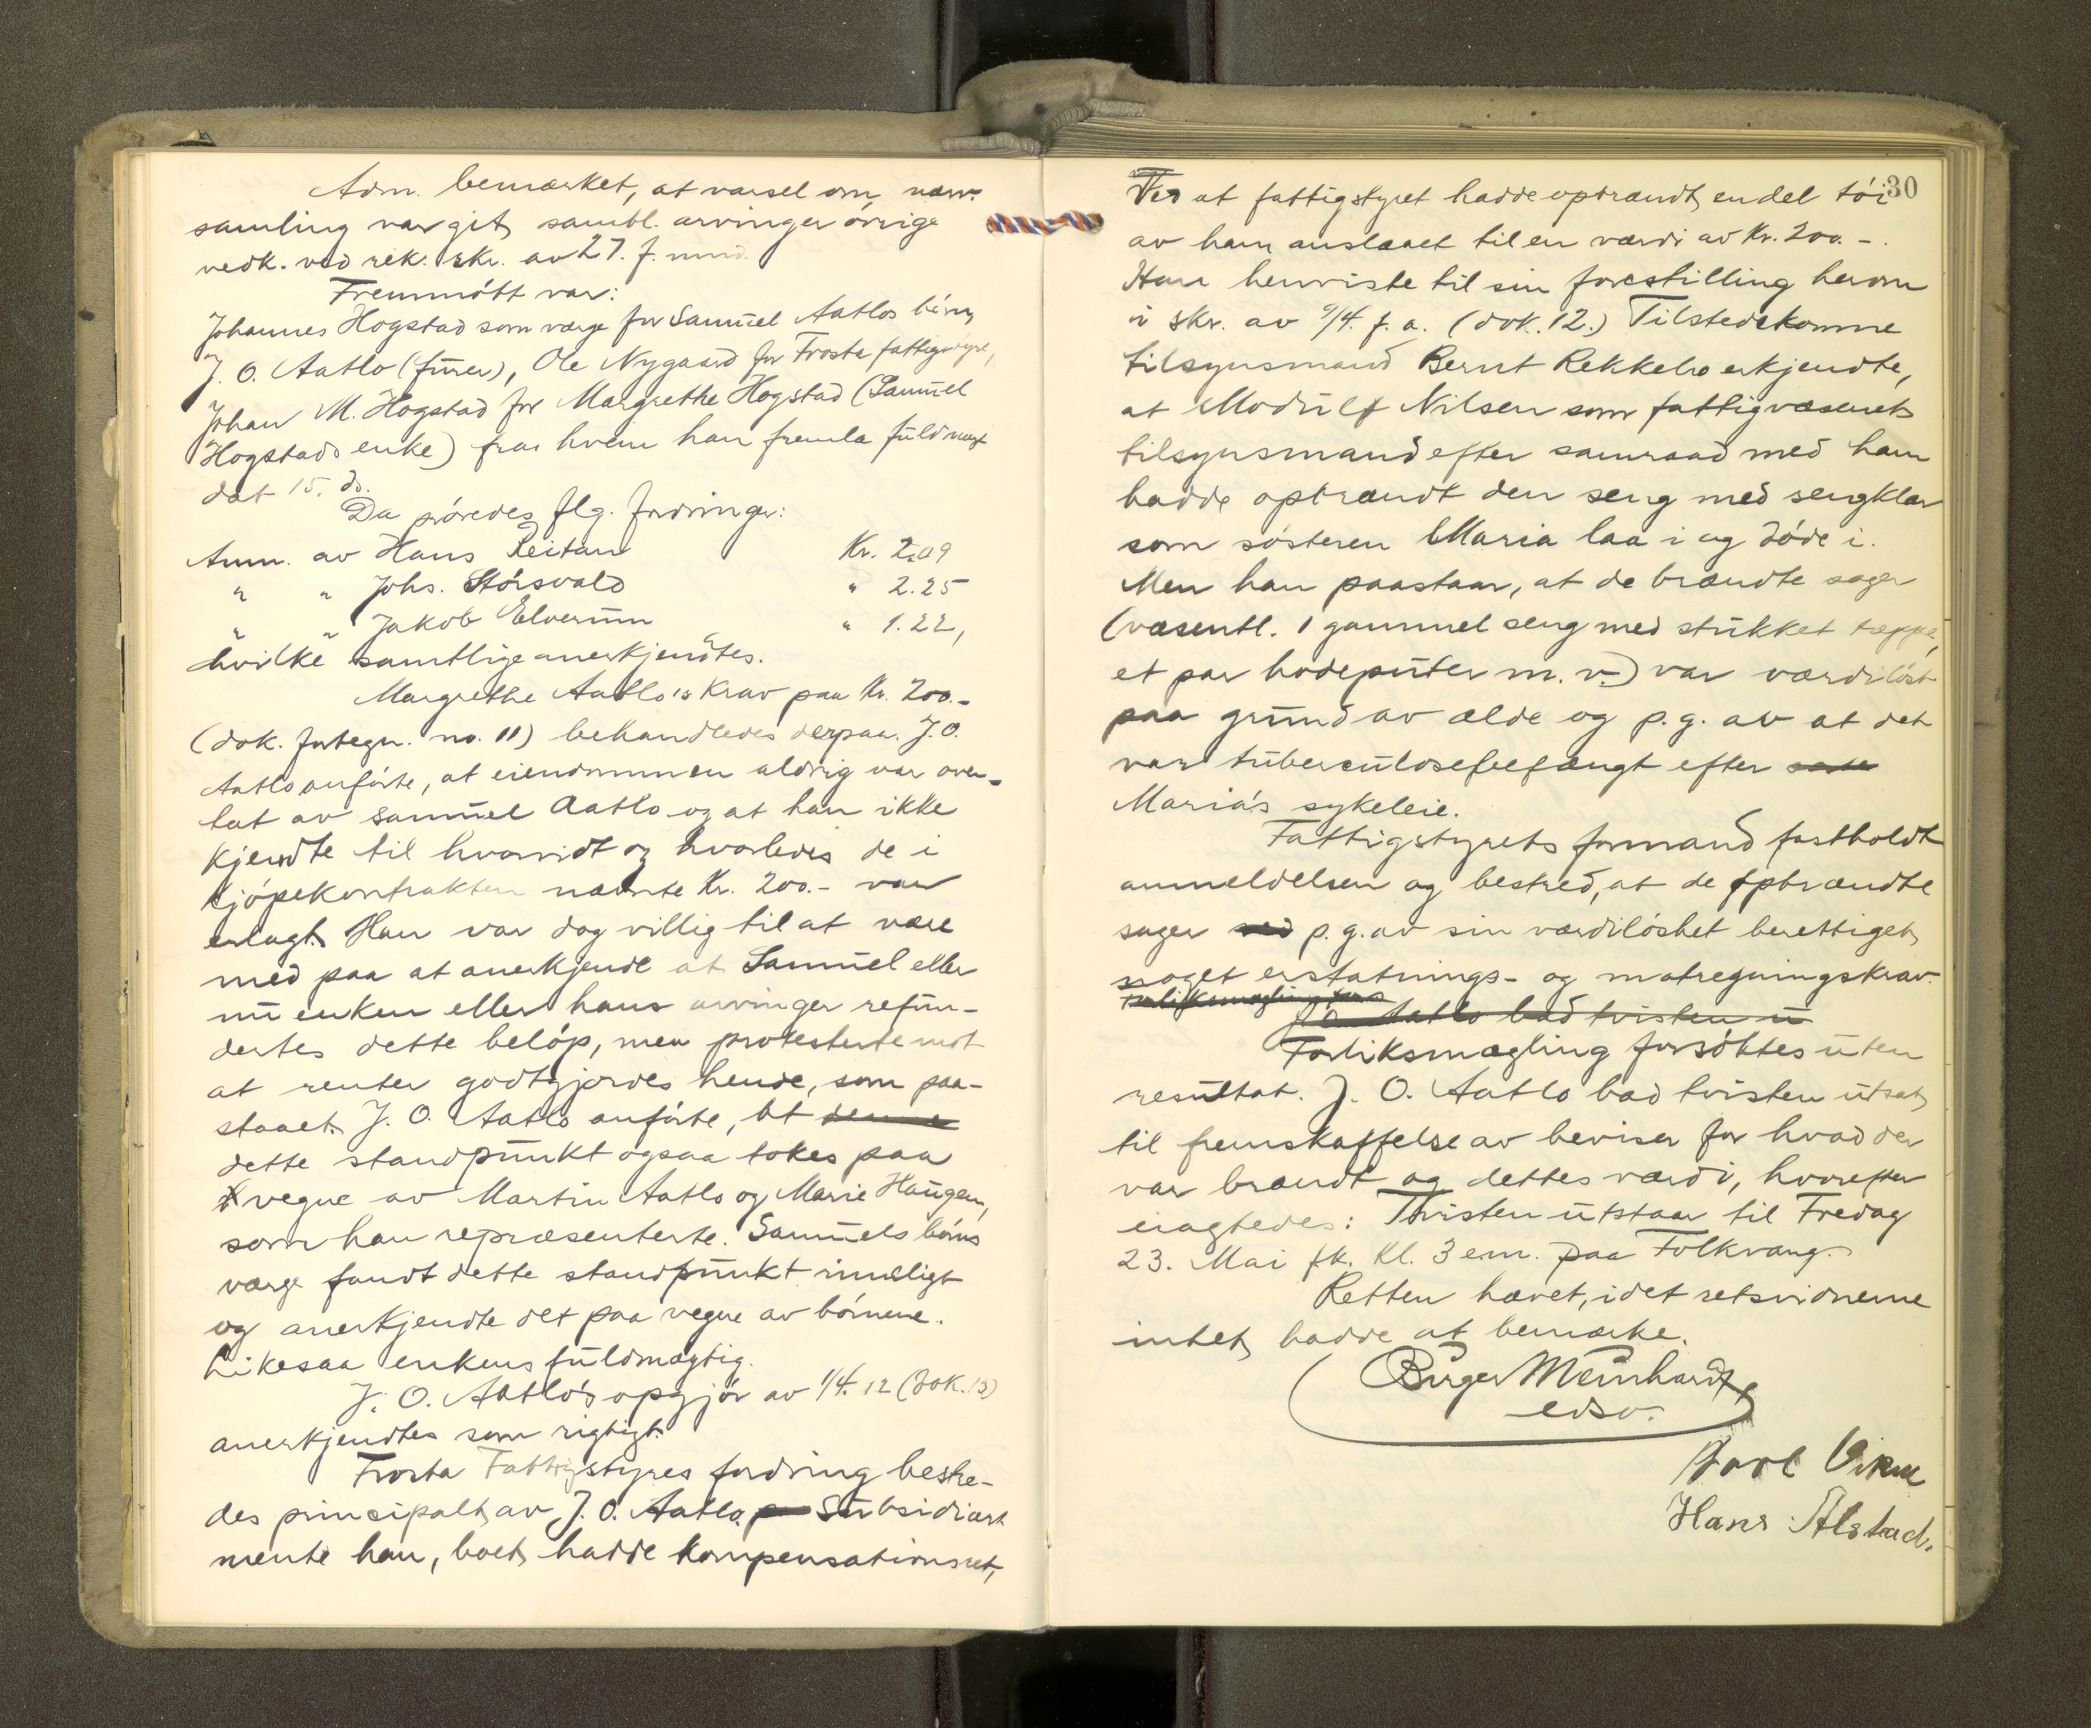 Adm. bemærket, at varsel om nærv.
samling var git samtl. arvinger övrige
vedk. ved rek. skr. av 27. f. mnd.
Fremmött var:
Johannes Hogstad som værge for Samuel Aatlos börn,
J. O. Aatlo (furer), Ole Nygaard for Frosta fattigstyre,
Johan M. Hogstad for Margrethe Hogstad (Samuel
Hogstads enke) fra hvem han fremla fuldmagt
dat 15. ds.
Da prövedes flg. fordringer:
Anm. av Hans Reitan Kr. 2.09
" " Johs. Störsvald " 2.25
" " Jakob Elverum " 1.22,
hvilke samtlige anerkjendtes.
Margrethe Aatlo's krav paa Kr. 200.-
(dok. fortegn. no. 11) behandledes derpaa. J.O.
Aatlo anförte, at eiendommen aldrig var over-
tat av Samuel Aatlo og at han ikke
kjendte til hvorvidt og hvorledes de i
kjöpekontrakten nævnte Kr. 200.- var
erlagt. Han var dog villig til at være
med paa at anerkjende at Samuel eller
nu enken eller hans arvinger refun-
dertes dette belöp, men protesterte mot
at renter godtgjordes hende, som paa-
staaet. J. O. Aatlo anförte, at
dette standpunkt ogsaa tokes paa
vegne av Martin Aatlo og Marie Haugen,
som han repræsenterte. Samuels börns
værge fandt dette standpunkt rimeligt
og anerkjendte det paa vegne av börnene.
Likesaa enkens fuldmægtig.
J. O. Aatlo's opgjör av 1/4. 12 (dok. 13)
anerkjendtes som rigtigt.
Frosta Fattigstyres fordring bestre-
des principalt av J. O. Aatlo. Subsidiært
mente han, boet hadde kompensationsret,
30
ved at fattigstyret hadde opbrændt endel töi
av ham anslaaet til en værdi av Kr. 200.-.
Han henviste til sin forestilling herom
i skr. av 9/4. f. a. (dok. 12.) Tilstedekomne
tilsynsmand Bernt Rekkebo erkjendte,
at Modulf Nilsen som fattigvæsenets
tilsynsmand efter samraad med ham
hadde opbrændt den seng med sengklær
som sösteren Maria laa i og döde i.
Men han paastaar, at de brændte sager
(væsentl. 1 gammel seng med stukket tæppe,
et par hodeputer m. v.) var værdilöst
paa grund av ælde og p. g. av at det
var tuberculosebefængt efter
Maria's sykeleie.
Fattigstyrets formand fastholdt
anmeldelsen og bestred, at de opbrændte
sager p. g. av sin værdilöshet berettiget
noget erstatnings- og motregningskrav.
J. O. Aatlo bad tvisten u
Forliksmægling forsöktes uten
resultat. J. O. Aatlo bad tvisten utsat
til fremskaffelse av beviser for hvad der
var brændt og dettes værdi, hvorefter
eragtedes: Tvisten utstaar til Fredag
23. Mai fk. Kl. 3 em. paa Folkvang.
Retten hævet, idet retsvidnerne
intet hadde at bemærke.
Birger Meinhardt
edsv.
Hans Alstad.